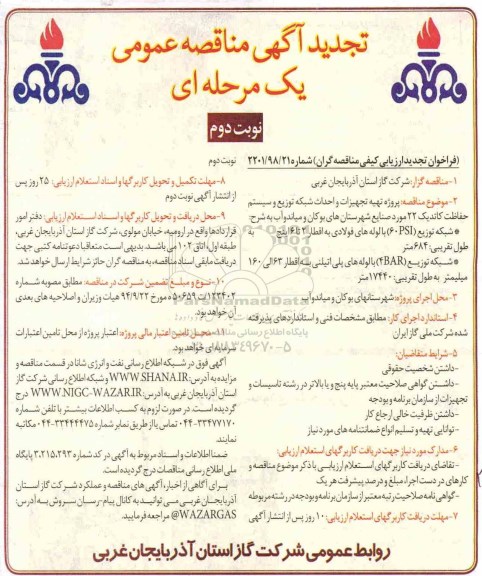 تجدید آگهی مناقصه عمومی
یک مرحله ای
نوبت دوم
(فراخوان تجدید ارزیابی کیفی مناقصه گران) شماره ۲۲۰۱/۹۸/۲۱
۱- مناقصه گزار: شرکت گاز استان آذربایجان غربی
۲- موضوع مناقصه: پروژه تهیه تجهیزات و احداث شبکه توزیع و سیستم
حفاظت کاتدیک ۲۲ مورد صنایع شهرستان های بوکان و میاندوآب به شرح:
* شبکه توزیع (۶۰PSI) با لوله های فولادی به اقطار ۲ تا ۶ اینچ به
طول تقریبی: ۶۸۴ متر
* شبکه توزیع (۴BAR) با لوله های پلی اتیلنی به اقطار ۶۳ الی ۱۶۰
میلیمتر به طول تقریبی: ۱۷۴۴۰ متر
۳- محل اجرای پروژه: شهرستانهای بوکان و میاندوآب
۴- استاندارد اجرای کار: مطابق مشخصات فنی و استانداردهای پذیرفته
شده شرکت ملی گاز ایران
۵- شرایط متقاضیان:
-داشتن شخصیت حقوقی
-داشتن گواهی صلاحیت معتبر پایه پنج و یا بالاتر در رشته تاسیسات و
تجهیزات از سازمان برنامه و بودجه
-داشتن ظرفیت خالی ارجاع کار
-توانایی تهیه و تسلیم انواع ضمانتنامه های مورد نیاز
۶- مدارک مورد نیاز جهت دریافت کاربرگهای استعلام ارزیابی:
-تقاضای دریافت کاربرگهای استعلام ارزیابی با ذکر موضوع مناقصه و
کارهای در دست اجرا، مبلغ و درصد پیشرفت هر یک
-گواهی نامه صلاحیت رتبه معتبر از سازمان برنامه و بودجه در رشته مربوطه
۷- مهلت دریافت کاربرگهای استعلام ارزیابی: ۱۰ روز پس از انتشار آگهی
نوبت دوم
۸- مهلت تکمیل و تحویل کاربرگها و اسناد استعلام ارزیابی: ۲۵ روز پس
از انتشار آگهی نوبت دوم
۹- محل دریافت و تحویل کاربرگها و اسناد استعلام ارزیابی: دفتر امور
قراردادها واقع در ارومیه، خیابان مولوی، شرکت گاز استان آذربایجان غربی،
طبقه اول، اتاق ۱۰۲ می باشد. بدیهی است متعاقبا دعوتنامه کتبی جهت
دریافت مابقی اسناد مناقصه، به مناقصه گران حائز شرایط ارسال خواهد شد.
۱۰- نوع و مبلغ تضمین شرکت در مناقصه: مطابق مصوبه شماره
۱۲۳۴۰۲/ت ۵۰۶۵۹ ه مورخ ۹۴/۹/۲۲ هیات وزیران و اصلاحیه های بعدی
آن خواهد بود.
۱۱- محل تامین اعتبار مالی پروژه: اعتبار پروژه از محل تامین اعتبارات
سرمایه ای خواهد بود.
آگهی فوق در شبکه اطلاع رسانی نفت و انرژی شانا در قسمت مناقصه و
مزایده به آدرس: WWW.SHANA.IR و شبکه اطلاع رسانی شرکت گاز
استان آذربایجان غربی به آدرس: WWW.NIGC-WAZAR.IR درج
گردیده است. در صورت لزوم به کسب اطلاعات بیشتر با تلفن شماره
۰۴۴-۳۳۴۷۷۱۷۰ تماس یا از طریق نمابر شماره ۰۴۴-۳۳۴۴۴۴۷۵ مکاتبه
نمایند.
ضمنا اطلاعات و اسناد مربوط به آگهی در کد شماره ۳,۲۱۵,۲۹۳ پایگاه
ملی اطلاع رسانی مناقصات درج گردیده است.
برای آگاهی از اخبار، آگهی های مناقصه و عملکرد شرکت گاز استان
آذربایجان غربی می توانید به کانال پیام-رسان سروش به آدرس:
@WAZARGAS مراجعه فرمایید.
روابط عمومی شرکت گاز استان آذربایجان غربی